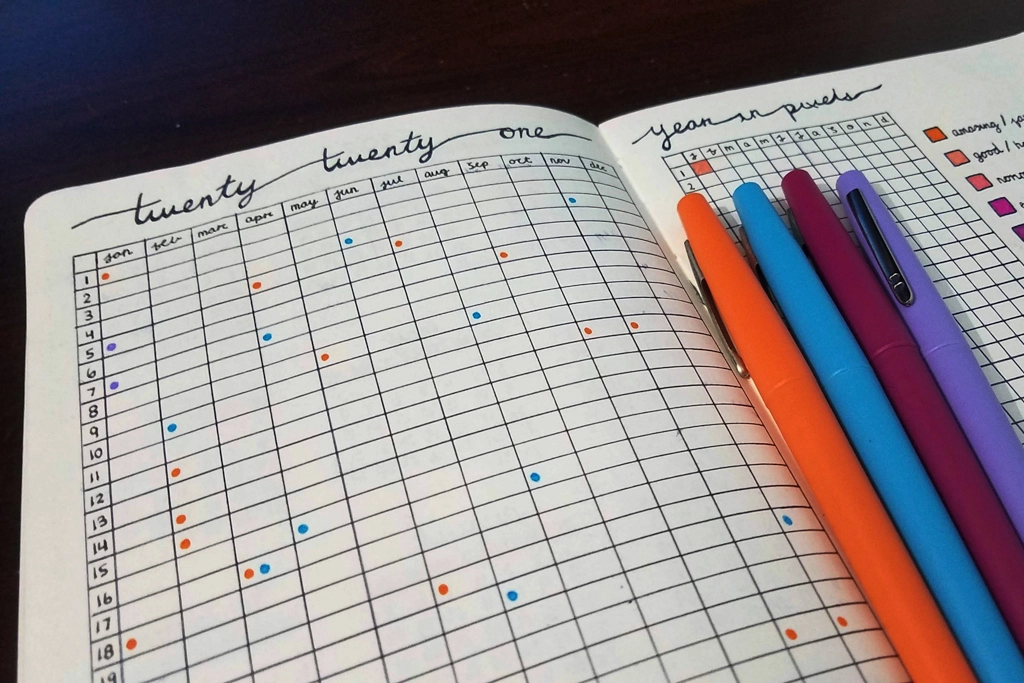 twenty twenty one
jan feb mar apr may jun jul aug sep oct nov dec
1
2
3
4
5
6
7
8
9
10
11
12
13
14
15
16
17
18
19
year in pixels
j f m a m j j a s o n d
1
2
amazing /
good /